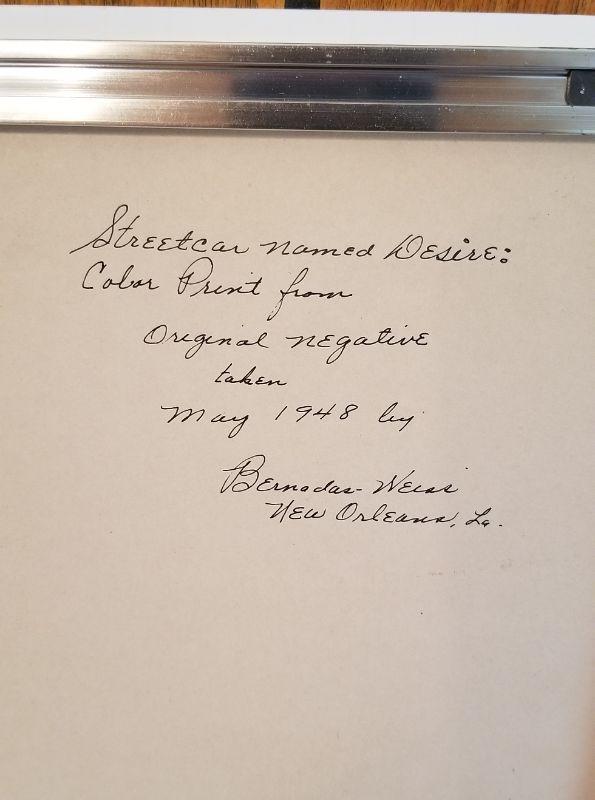 Streetcar named Desire:
Color Print from
Original negative
taken
May 1948 by
Bernadas-Weiss
New Orleans, La.